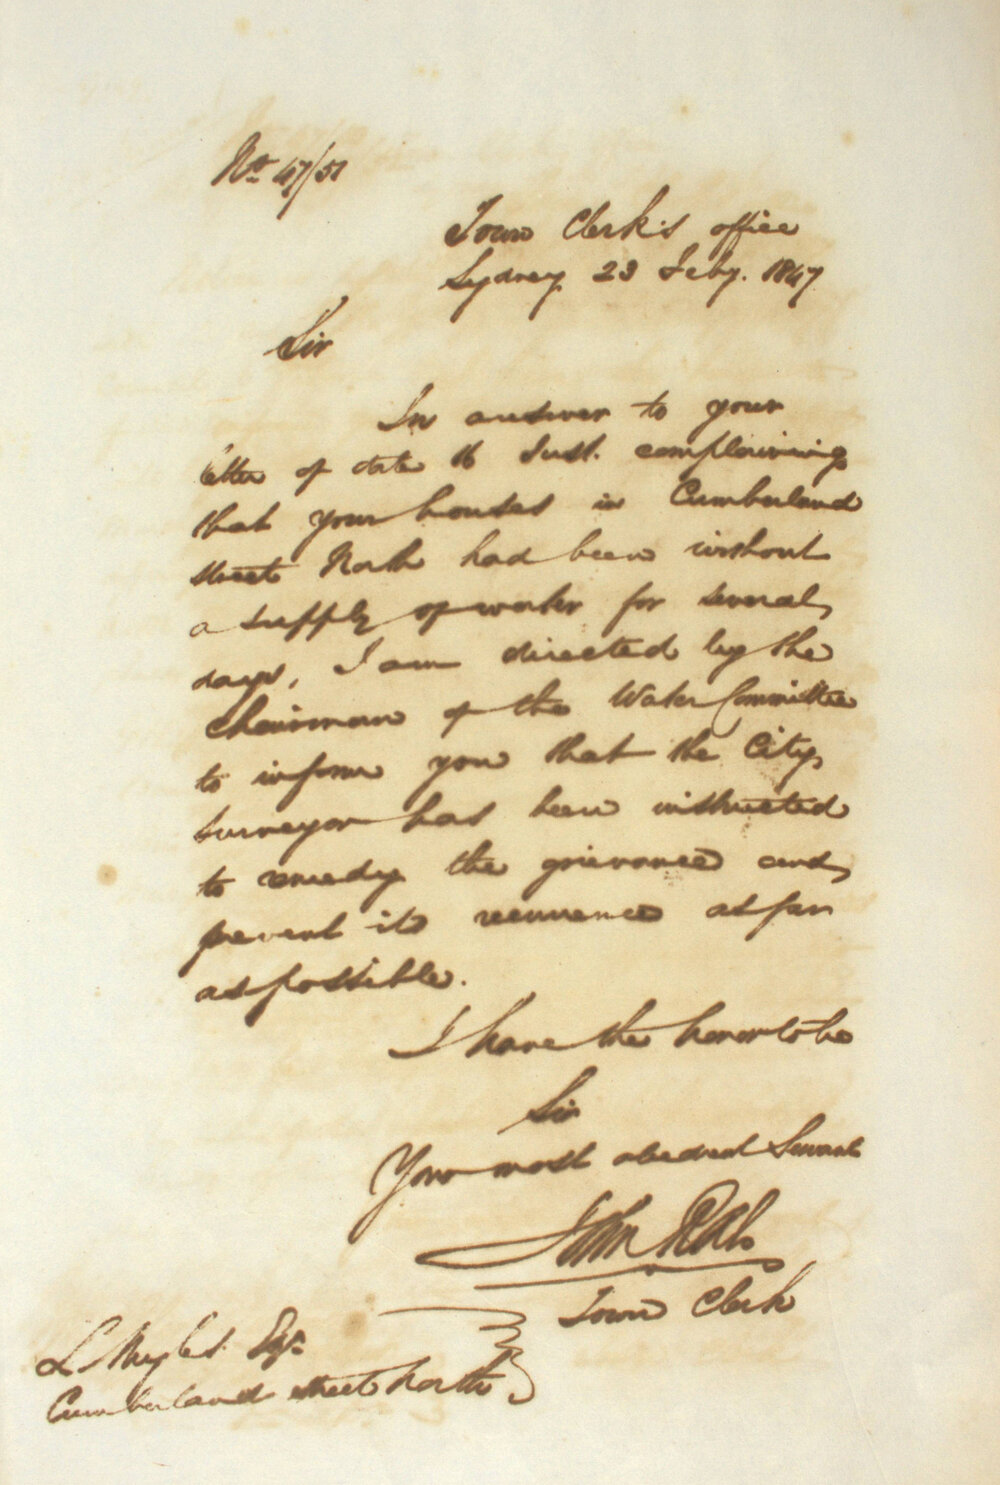 No. 47/51
Town Clerk's office
Sydney 23 Feby. 1847
Sir
In answer to your
letter of date 16 Inst. complaining
that your houses in Cumberland
street North had been without
a supply of water for several
days, I am directed by the
Chairman of the Water Committee
to inform you that the City
Surveyor has been instructed
to remedy the grievance and
prevent its recurrence as far
as possible.
I have the honor to be
Sir
Your most obedient Servant
John
Town Clerk
L Esqr.
Cumberland street North